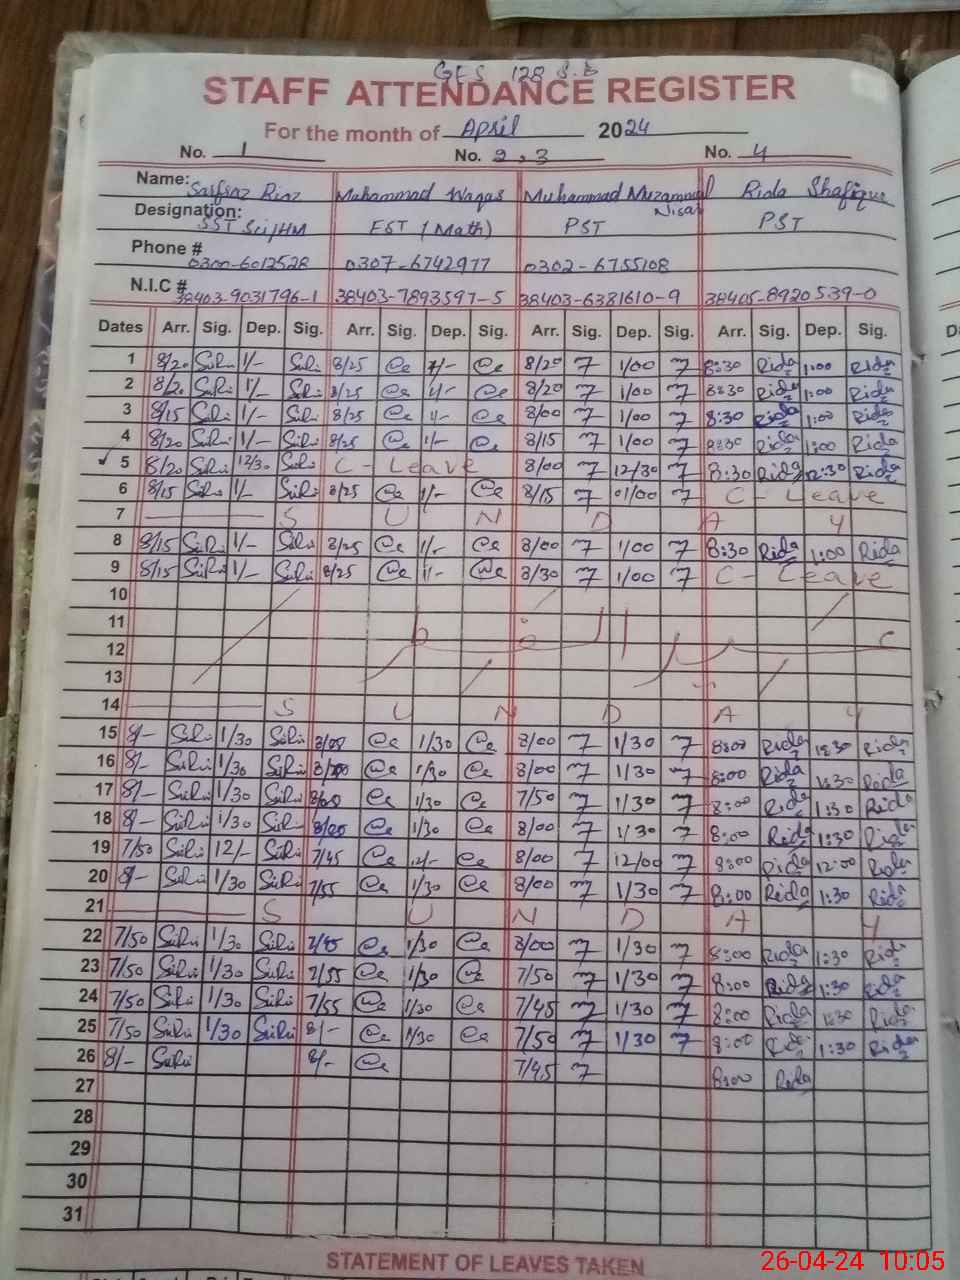 GES 128 S.B
STAFF ATTENDANCE REGISTER
For the month of April 2024
No. 1 No. 2, 3 No. 4
Name: Sarfraz Riaz Muhammad Waqas Muhammad Muzammal Nisar Rida Shafique
Designation: SST Sci/HM EST (Math) PST PST
Phone # 0300-6012528 0307-6742977 0302-6755108
N.I.C # 38403-9031796-1 38403-7893597-5 38403-6381610-9 38405-8920539-0
Dates Arr. Sig. Dep. Sig. Arr. Sig. Dep. Sig. Arr. Sig. Dep. Sig. Arr. Sig. Dep. Sig.
1 8/20 1/- 8/25 1/- 8/20 1/00 8:30 Rida 1:00 Rida
2 8/20 1/- 8/25 1/- 8/20 1/00 8:30 Rida 1:00 Rida
3 8/15 1/- 8/25 1/- 8/00 1/00 8:30 Rida 1:00 Rida
4 8/20 1/- 8/25 1/- 8/15 1/00 8:30 Rida 1:00 Rida
5 8/20 12/30 C-Leave 8/00 12/30 8:30 Rida 12:30 Rida
6 8/15 1/- 8/25 1/- 8/15 01/00 C-Leave
7 S U N D A Y
8 8/15 1/- 8/25 1/- 8/00 1/00 8:30 Rida 1:00 Rida
9 8/15 1/- 8/25 1/- 8/30 1/00 C-Leave
10
11
12 عید الفطر
13
14 S U N D A Y
15 8/- 1/30 8/00 1/30 8/00 1/30 8:00 Rida 1:30 Rida
16 8/- 1/30 8/00 1/30 8/00 1/30 8:00 Rida 1:30 Rida
17 8/- 1/30 8/00 1/30 7/50 1/30 8:00 Rida 1:30 Rida
18 8/- 1/30 8/00 1/30 8/00 1/30 8:00 Rida 1:30 Rida
19 7/50 12/- 7/45 12/- 8/00 12/00 8:00 Rida 12:00 Rida
20 8/- 1/30 7/55 1/30 8/00 1/30 8:00 Rida 1:30 Rida
21 S U N D A Y
22 7/50 1/30 7/45 1/30 8/00 1/30 8:00 Rida 1:30 Rida
23 7/50 1/30 7/55 1/30 7/50 1/30 8:00 Rida 1:30 Rida
24 7/50 1/30 7/55 1/30 7/45 1/30 8:00 Rida 1:30 Rida
25 7/50 1/30 8/- 1/30 7/50 1/30 8:00 Rida 1:30 Rida
26 8/- 8/- 7/45 8:00 Rida
27
28
29
30
31
STATEMENT OF LEAVES TAKEN
26-04-24 10:05